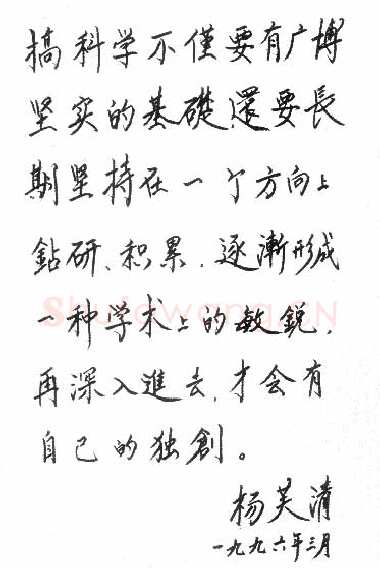 搞科学不僅要有广博
坚实的基礎,還要長
期坚持在一个方向上
鉆研、积累,逐漸形成
一种学术上的敏銳,
再深入進去,才会有
自己的独創。
杨芙清
一九九六年三月
Shufawang.CN